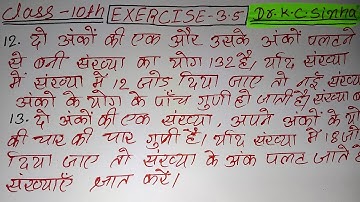 Class-10th EXERCISE-3.5 Dr. K.C. Sinha
12. दो अंकों की एक और उसके अंकों पलटने
से बनी संख्या का योग 132 है, यदि संख्या
में संख्या में 12 जोड़ दिया जाए तो नई संख्या
अंकों के योग के पाँच गुणी हो जाती है, संख्या
13. दो अंकों की एक संख्या, अपने अंकों के
की चार की चार गुणी है। यदि संख्या में 18
दिया जाए तो संख्या के अंक पलट जाते
संख्याएँ ज्ञात करें।